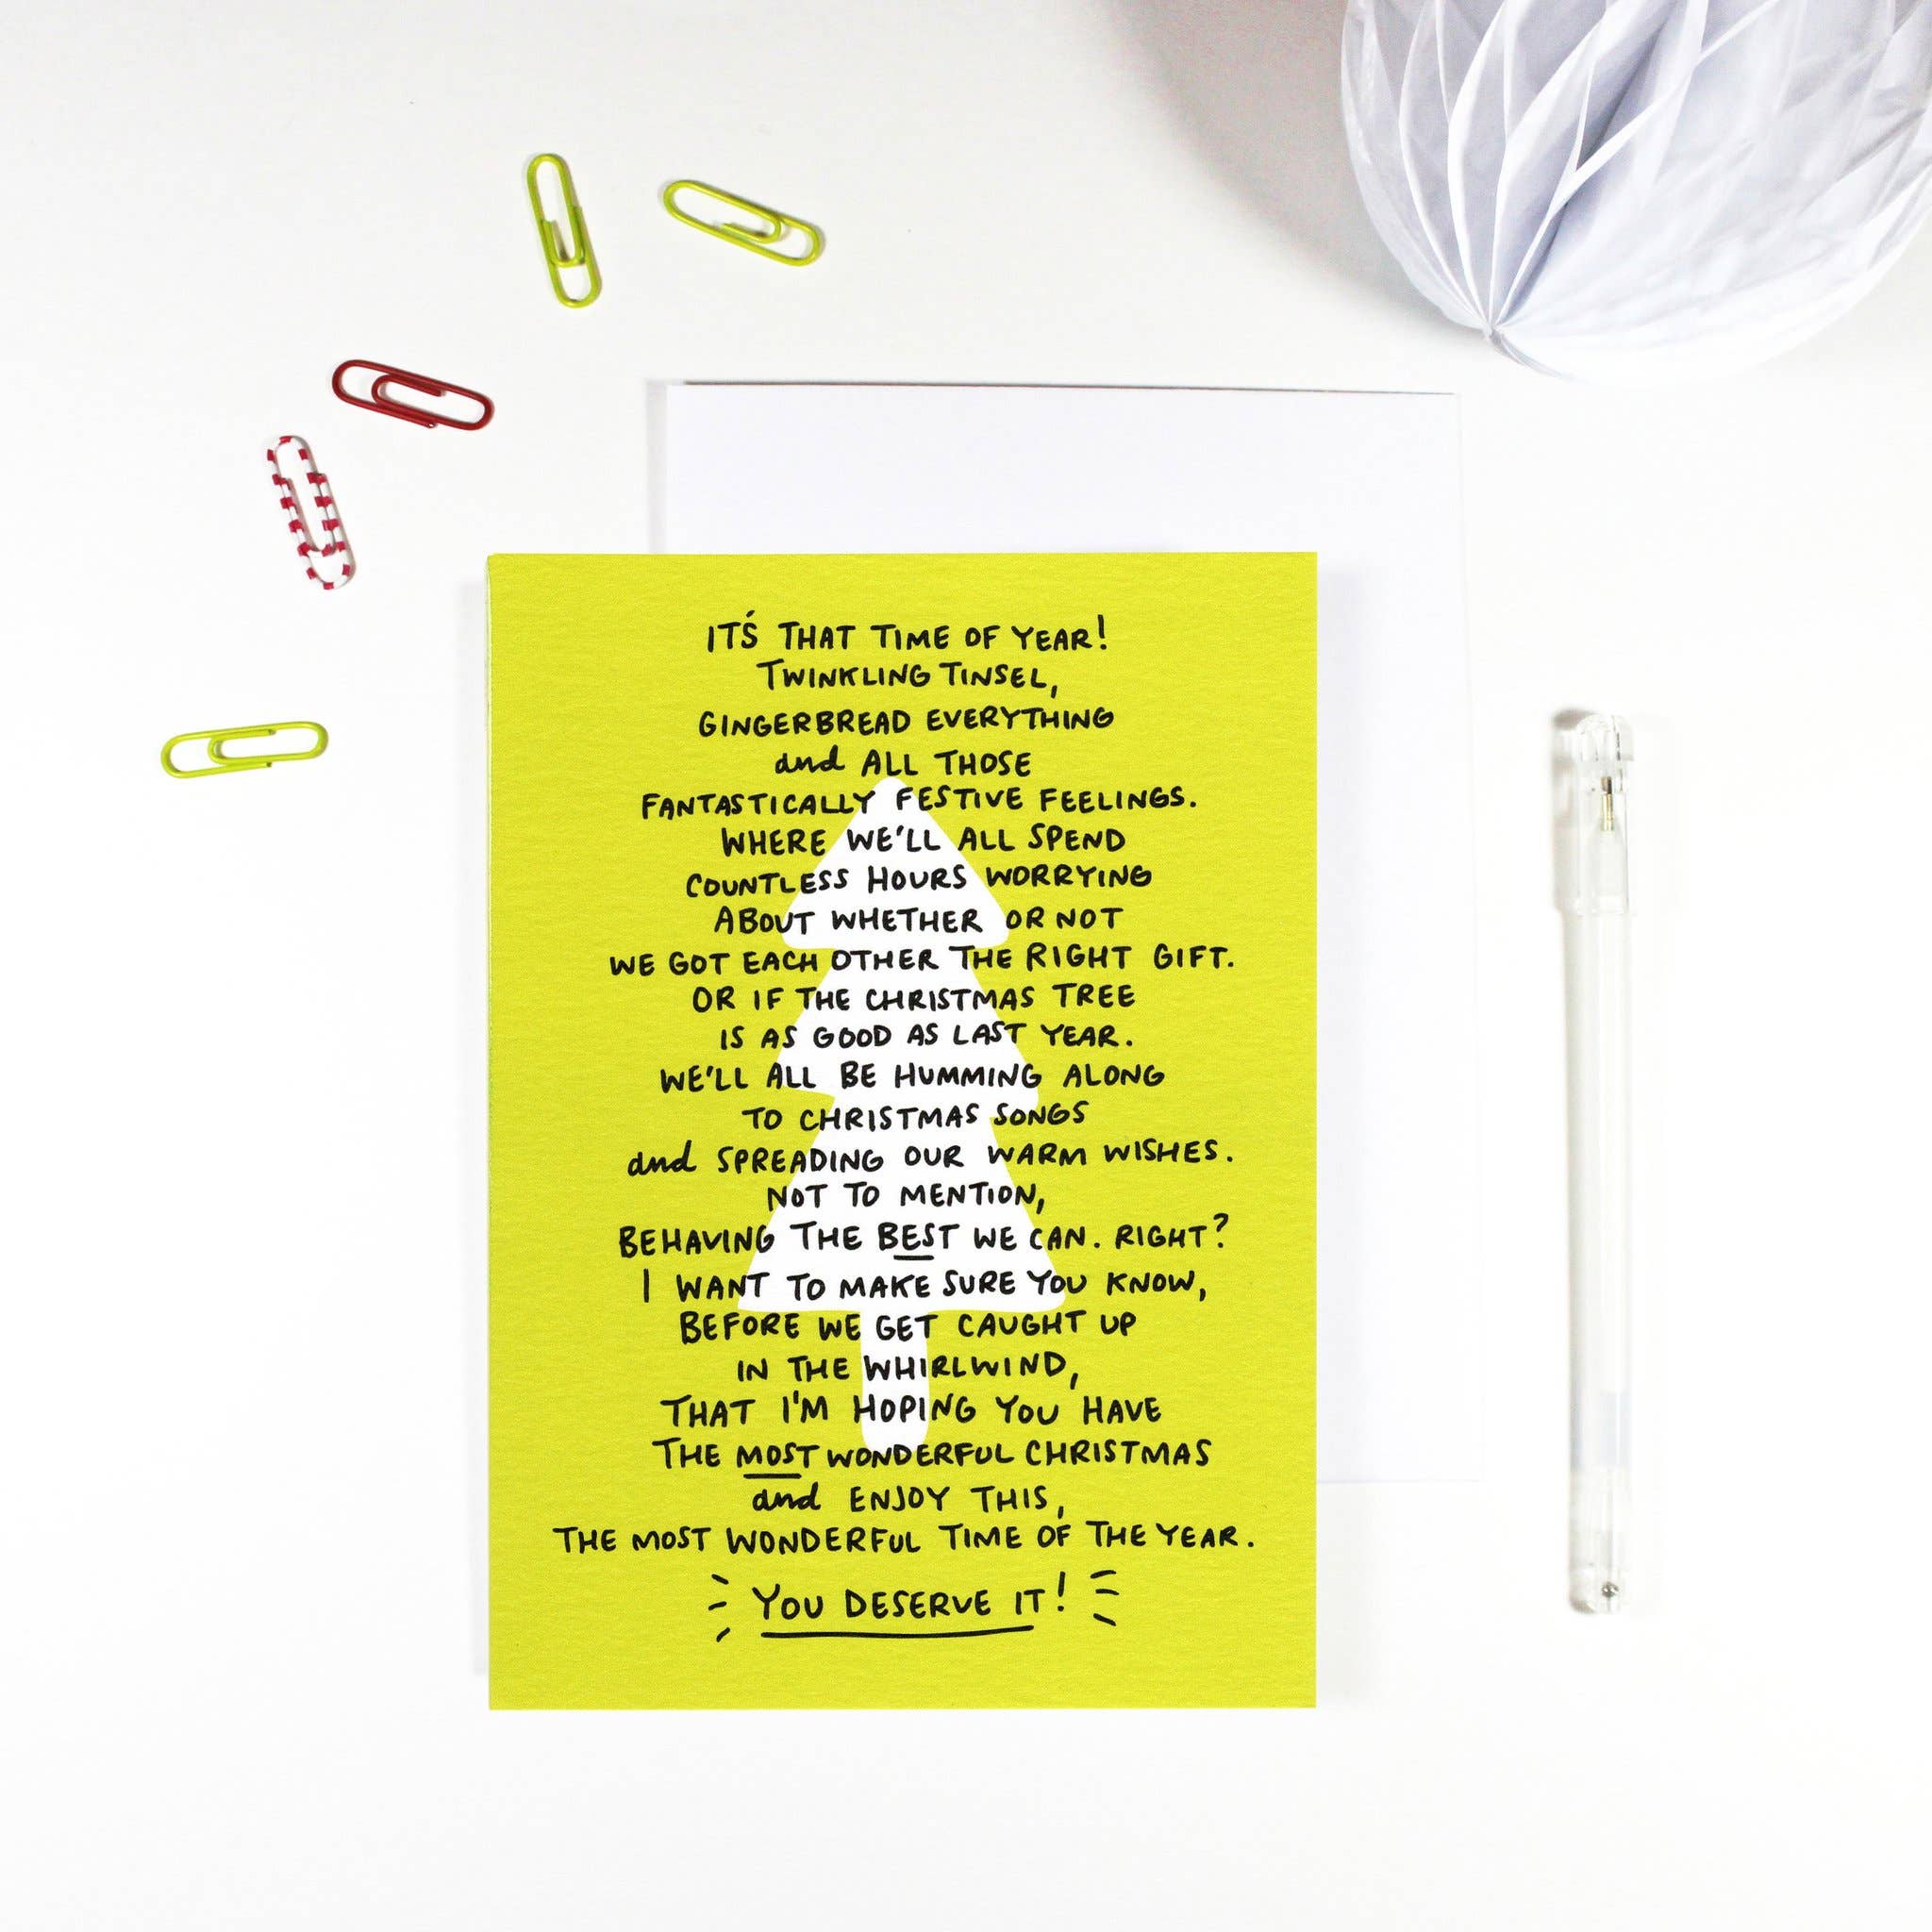 IT'S THAT TIME OF YEAR!
TWINKLING TINSEL,
GINGERBREAD EVERYTHING
and ALL THOSE
FANTASTICALLY FESTIVE FEELINGS.
WHERE WE'LL ALL SPEND
COUNTLESS HOURS WORRYING
ABOUT WHETHER OR NOT
WE GOT EACH OTHER THE RIGHT GIFT.
OR IF THE CHRISTMAS TREE
IS AS GOOD AS LAST YEAR.
WE'LL ALL BE HUMMING ALONG
TO CHRISTMAS SONGS
and SPREADING OUR WARM WISHES.
NOT TO MENTION,
BEHAVING THE BEST WE CAN. RIGHT?
I WANT TO MAKE SURE YOU KNOW,
BEFORE WE GET CAUGHT UP
IN THE WHIRLWIND,
THAT I'M HOPING YOU HAVE
THE MOST WONDERFUL CHRISTMAS
and ENJOY THIS,
THE MOST WONDERFUL TIME OF THE YEAR.
YOU DESERVE IT!